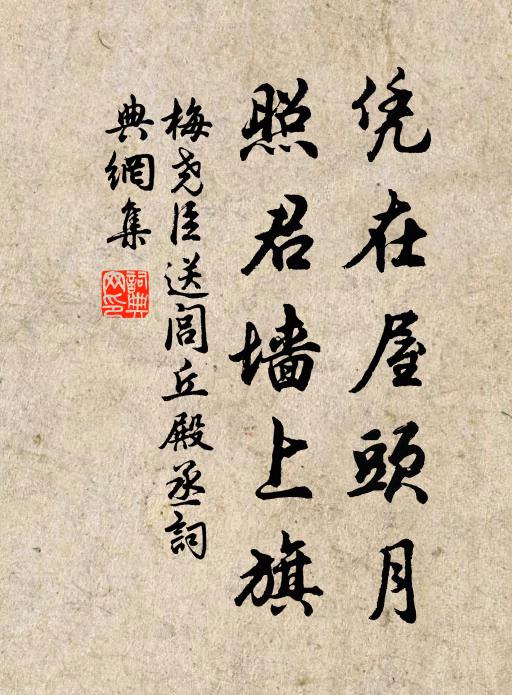 凭在屋頭月
照君墙上旗
梅尧臣送閭丘殿丞詞
典網集
詞典
网印